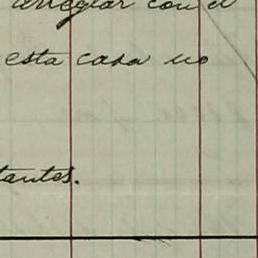 arreglar con el
esta casa no
tantes.